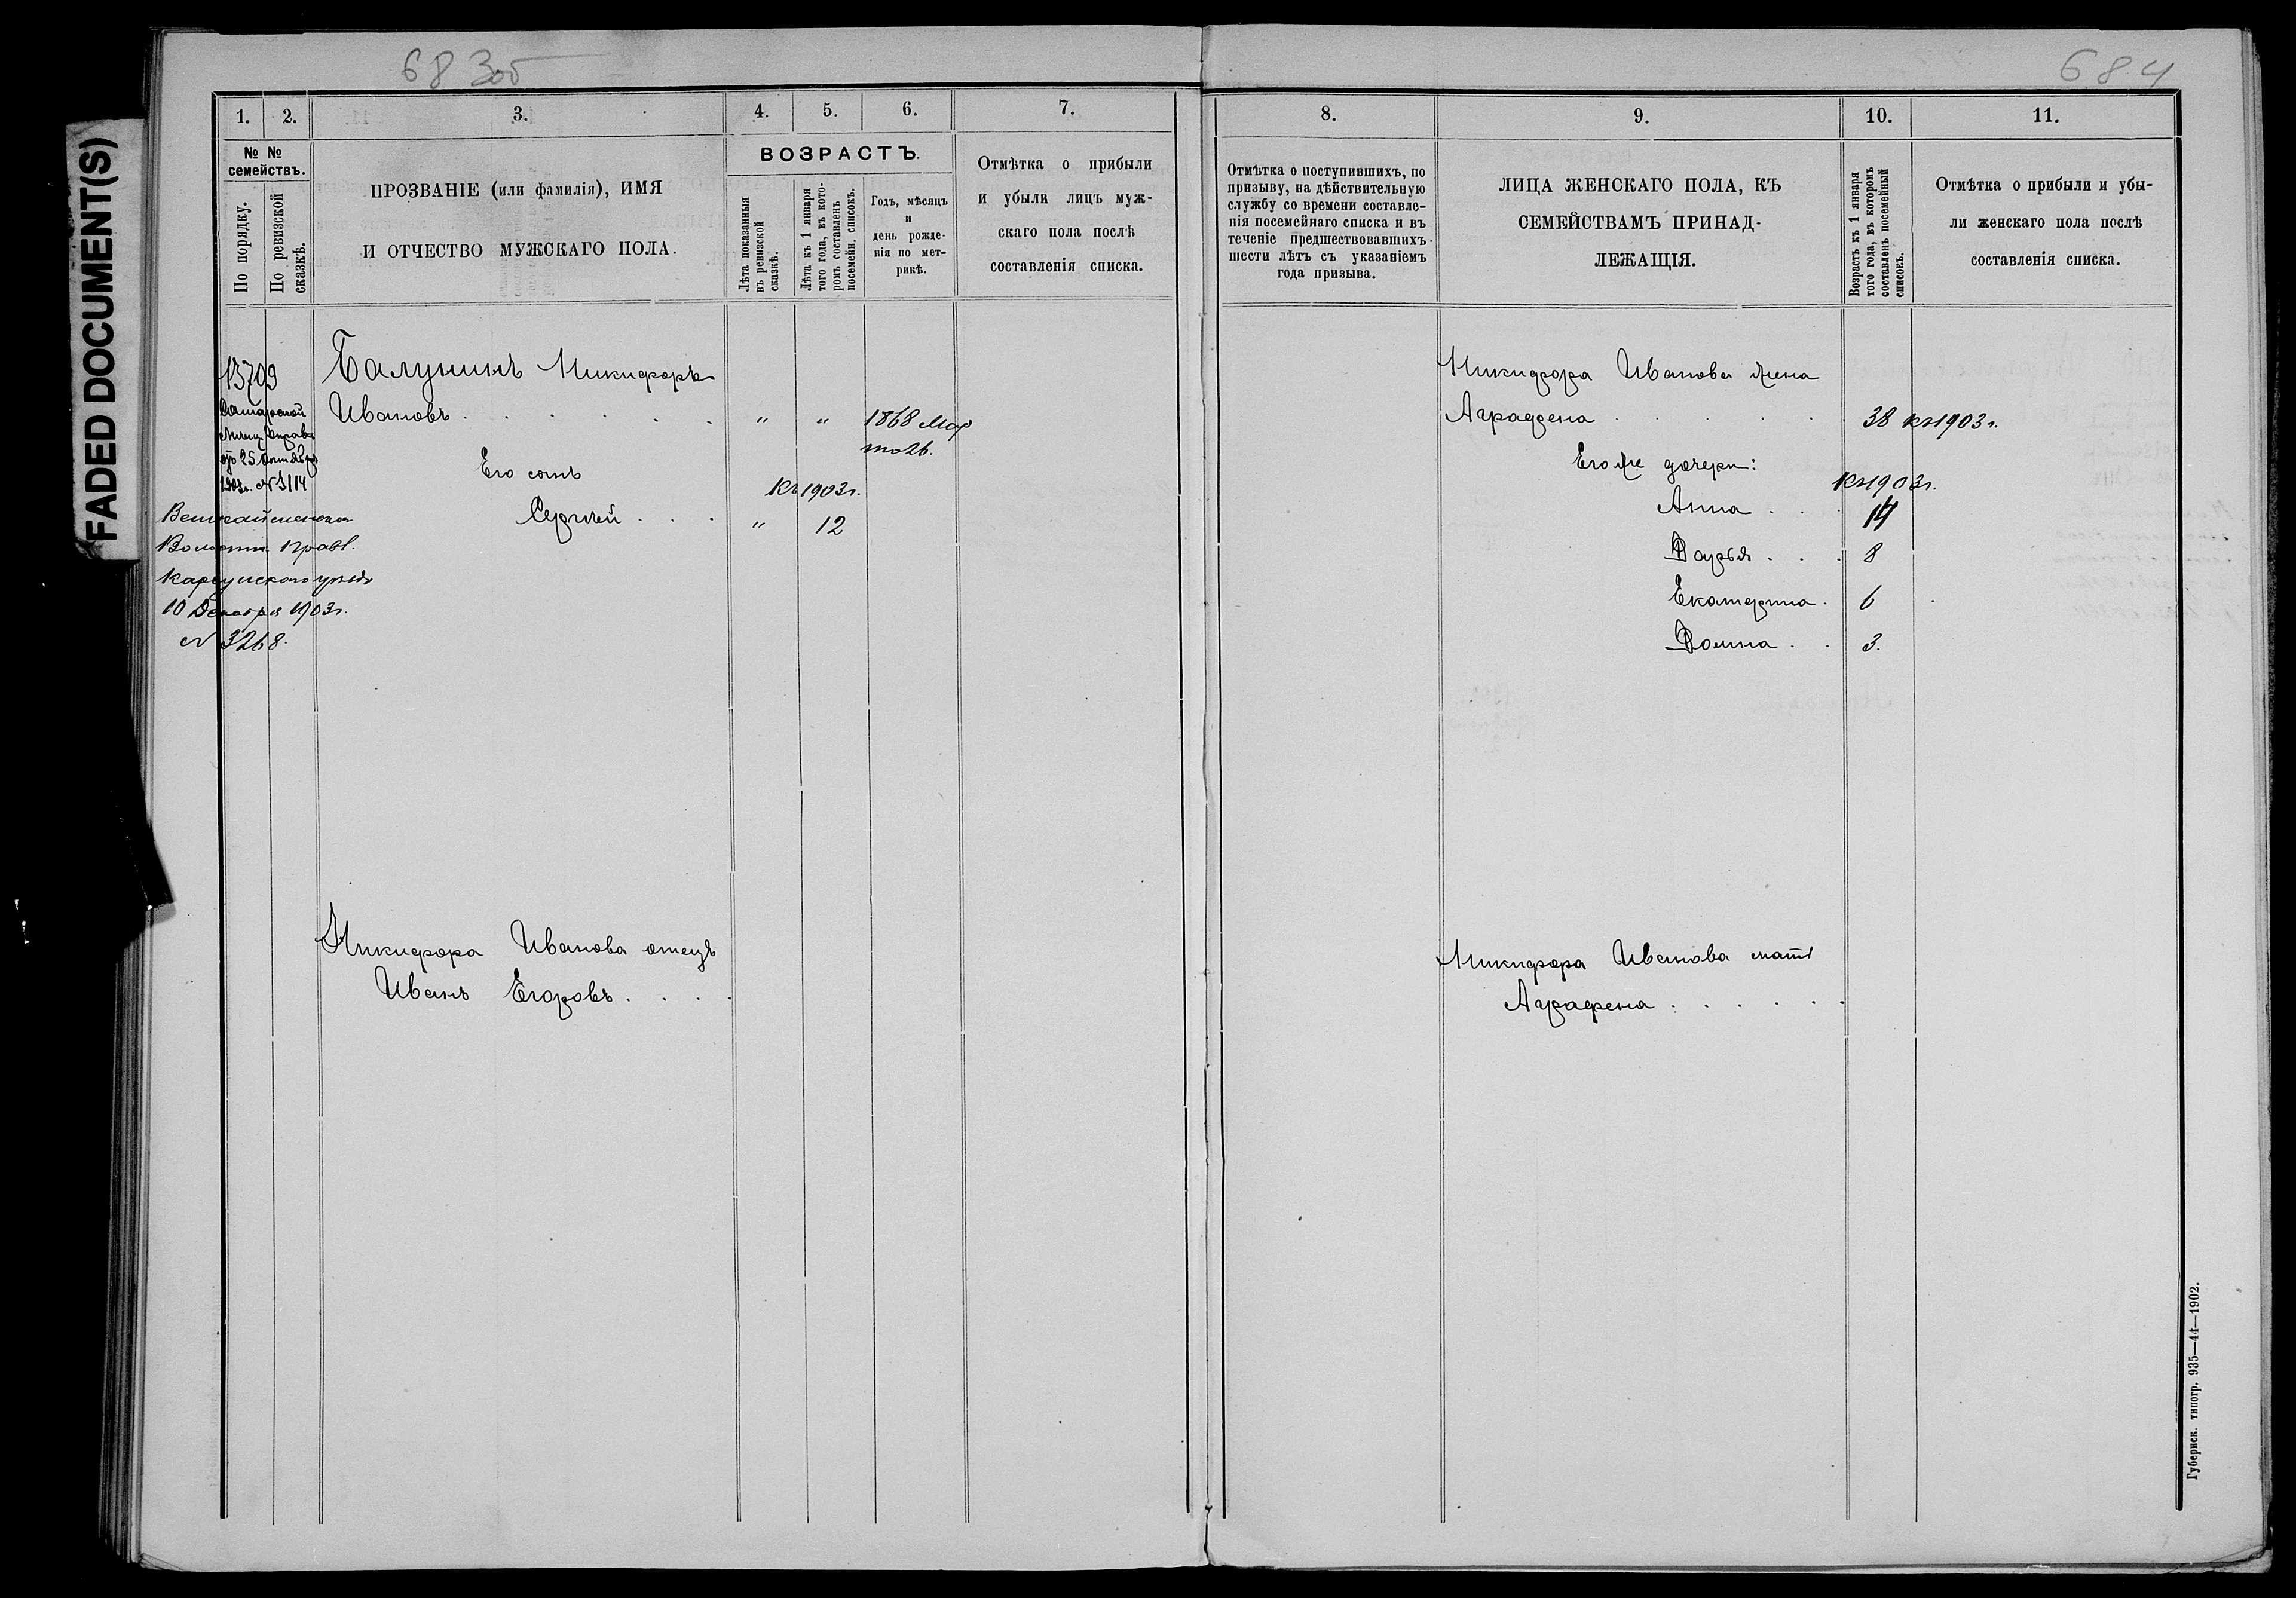 FADED DOCUMENT(S)
683об
684
1.
2.
3.
4.
5.
6.
7.
№ №
семействъ.
По порядку.
По ревизской
сказкѣ.
ПРОЗВАНІЕ (или фамилія), ИМЯ
И ОТЧЕСТВО МУЖСКАГО ПОЛА.
ВОЗРАСТЪ.
Лѣта показанныя
въ ревизской
сказкѣ.
Лѣта къ 1 января
того года, въ кото-
ромъ составленъ
посемейн. списокъ.
Годъ, мѣсяцъ
и
день рожде-
нія по мет-
рикѣ.
Отмѣтка о прибыли
и убыли лицъ муж-
скаго пола послѣ
составленія списка.
13709
Самарской
Мѣщ. Управы
отъ 25 октября
1903г. №
Волостн. Правл.
Карсунскаго уѣзда
10 Декабря 1903г.
№ 3268.
Балунинъ Никифоръ
Ивановъ . . . . . " " 1868 Мар
та 26.
Его сынъ
къ 1903г.
Сергѣй . . . " 12
Никифора Иванова отецъ
Иванъ Егоровъ . . . .
8.
9.
10.
11.
Отмѣтка о поступившихъ, по
призыву, на дѣйствительную
службу со времени составле-
нія посемейнаго списка и въ
теченіе предшествовавшихъ
шести лѣтъ съ указаніемъ
года призыва.
ЛИЦА ЖЕНСКАГО ПОЛА, КЪ
СЕМЕЙСТВАМЪ ПРИНАД-
ЛЕЖАЩІЯ.
Возрастъ къ 1 января
того года, въ которомъ
составленъ посемейный
списокъ.
Отмѣтка о прибыли и убы-
ли женскаго пола послѣ
составленія списка.
Никифора Иванова жена
Аграфена . . . . . 38 къ 1903г.
Его же дочери:
къ 1903г.
Анна . . . 14
Дарья . . . 8
Екатерина . 6
Домна . . 3.
Никифора Иванова мать
Аграфена . . . . . .
Губернск. типогр. 935—44—1902.